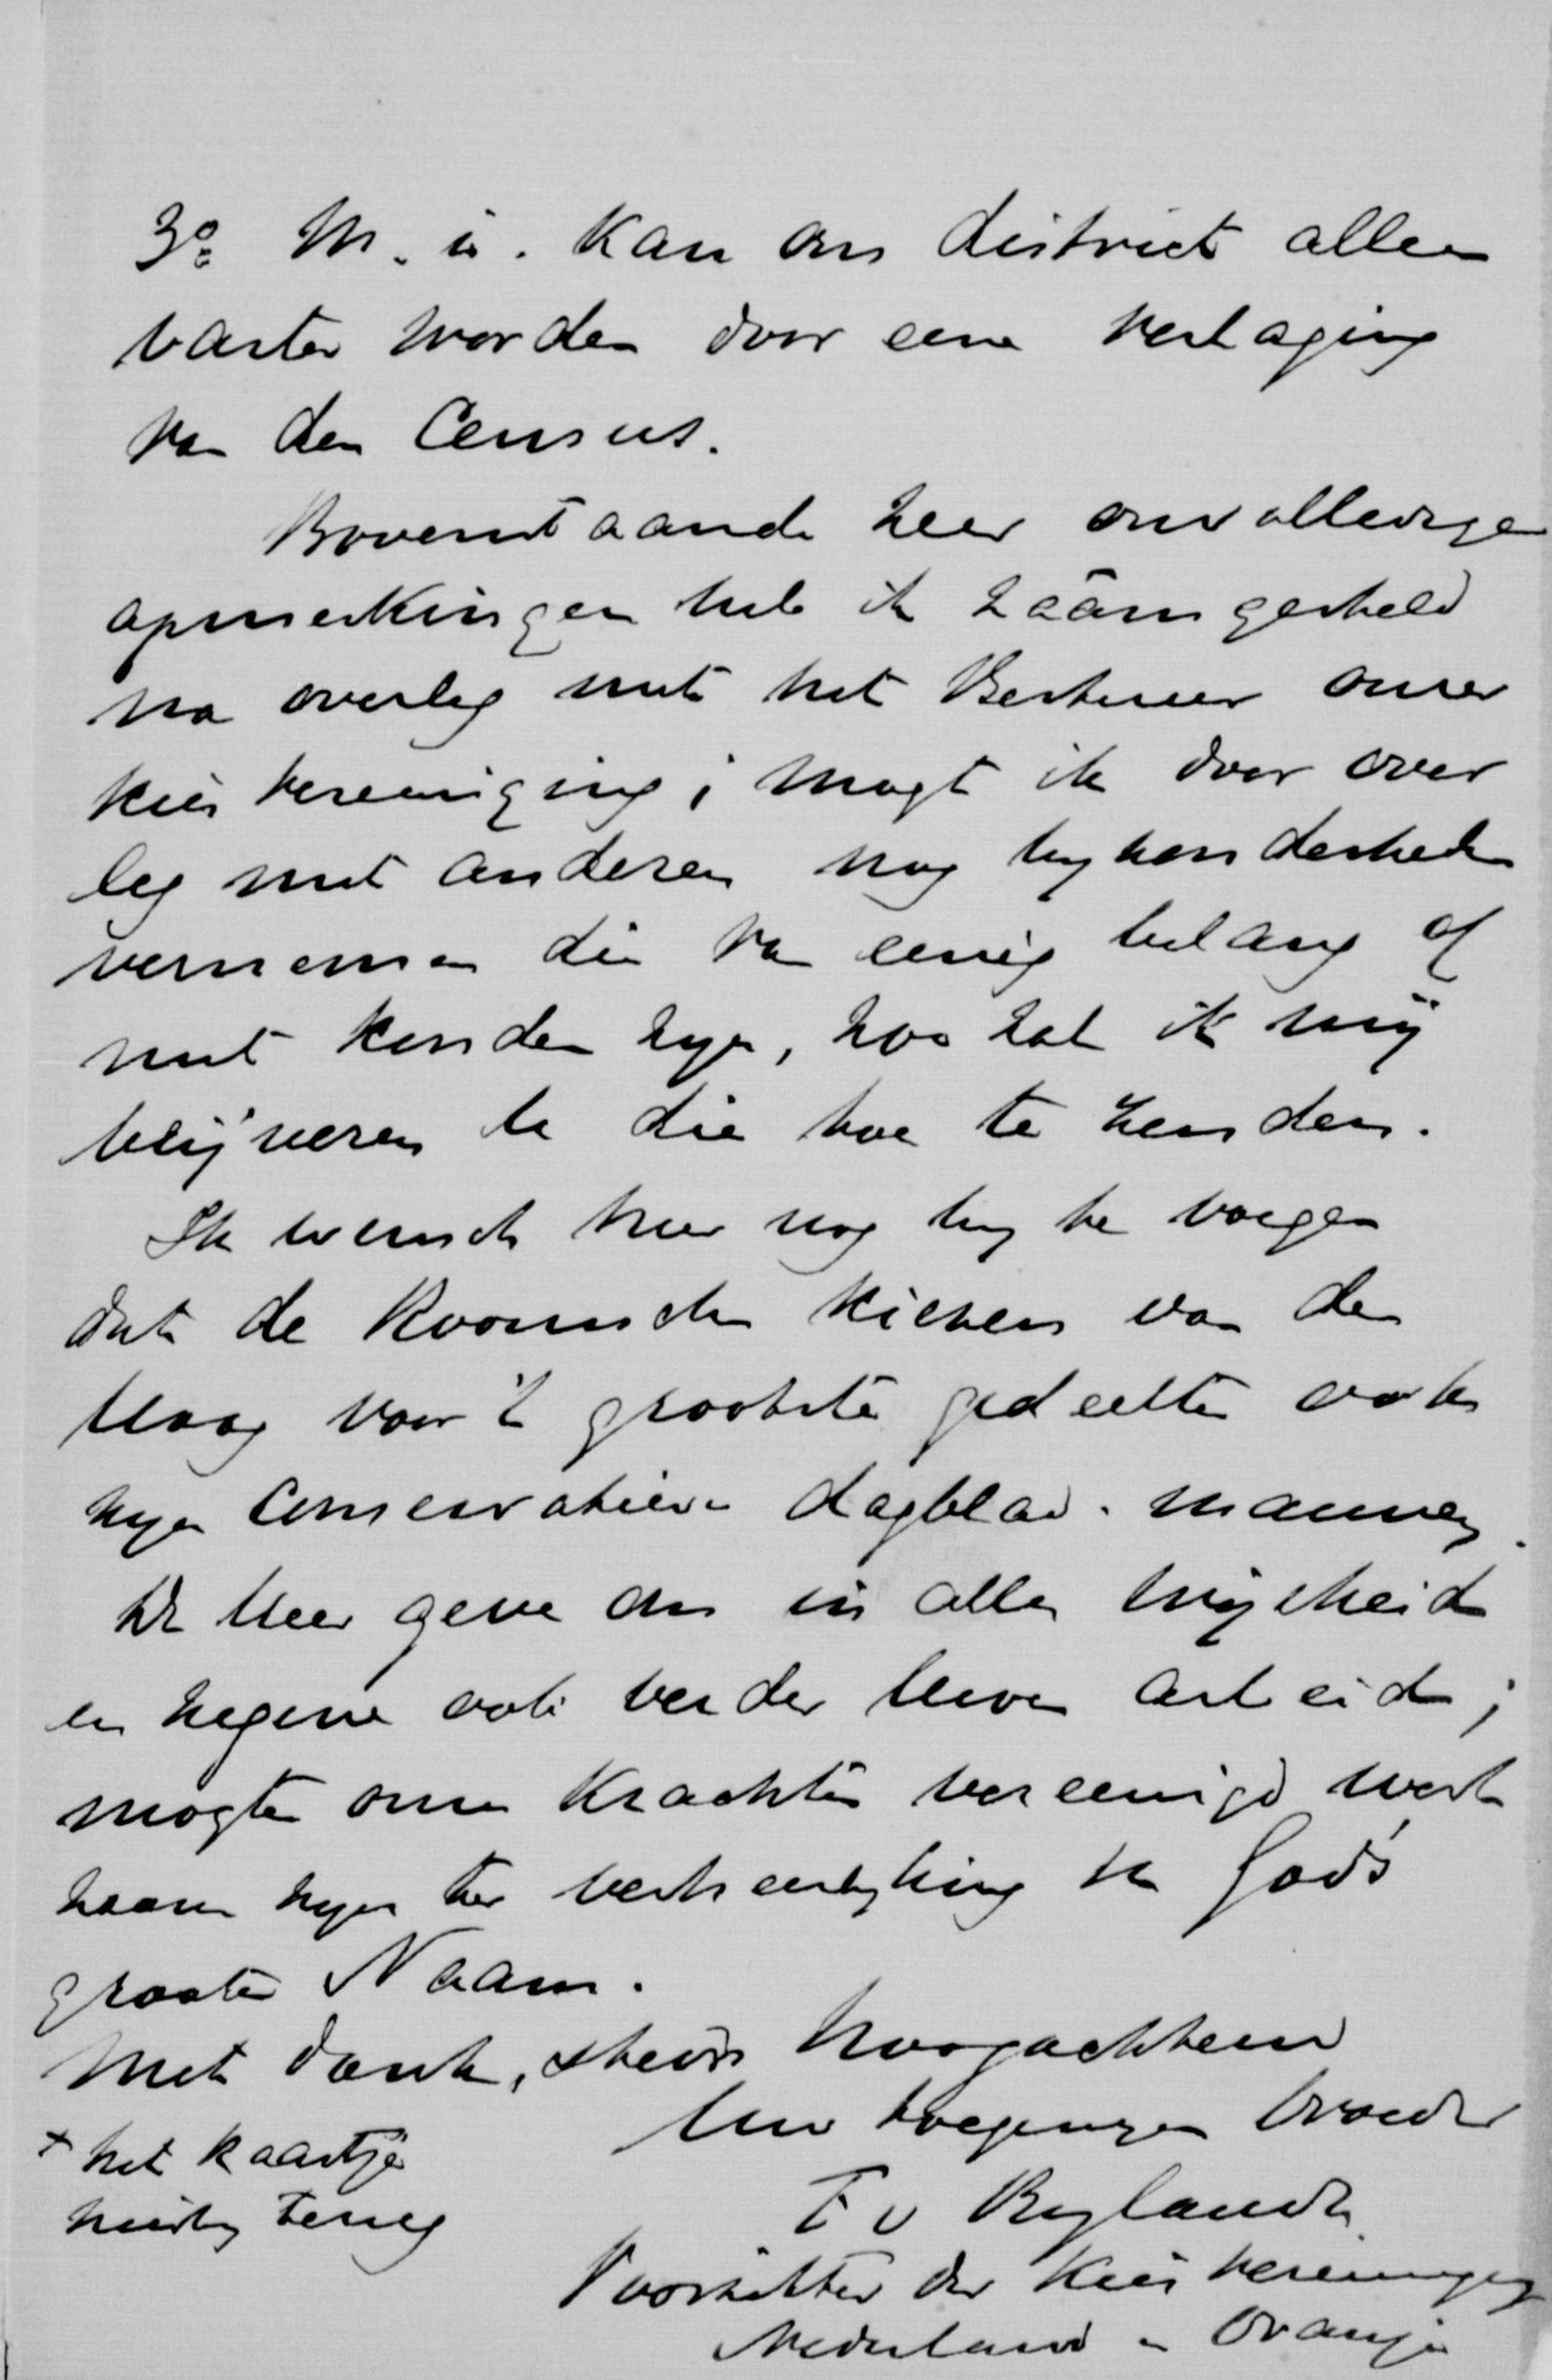 3o M. i. kan ons district alleen
vaster worden door eene verlaging
van den Census.
Bovenstaande zeer onvolledige
opmerkingen heb ik zaâmgesteld
na overleg met het Bestuur onzer
kiesvereeniging; mogt ik door over
leg met anderen nog byzonderheden
vernemen die van eenig belang of
nut konden zyn, zoo zal ik mij
beijveren U die toe te zenden.
Ik wensch hier nog by te voegen
dat de Roomsche kiezers van den
Haag voor 't grootste gedeelte ook
zyn Conservatieve dagblad-mannen.
De Heer geve ons in alles wijsheid
en zegene ook verder Uwen arbeid;
mogten onze krachten vereenigd werk
zaam zyn ter verheerlyking van God's
grooten Naam.
Met dank, steeds hoogachtend
Uw toegenegen broeder
F v Bylandt
Voorzitter der Kiesvereeniging
Nederland en Oranje
+ het kaartje
hierby terug